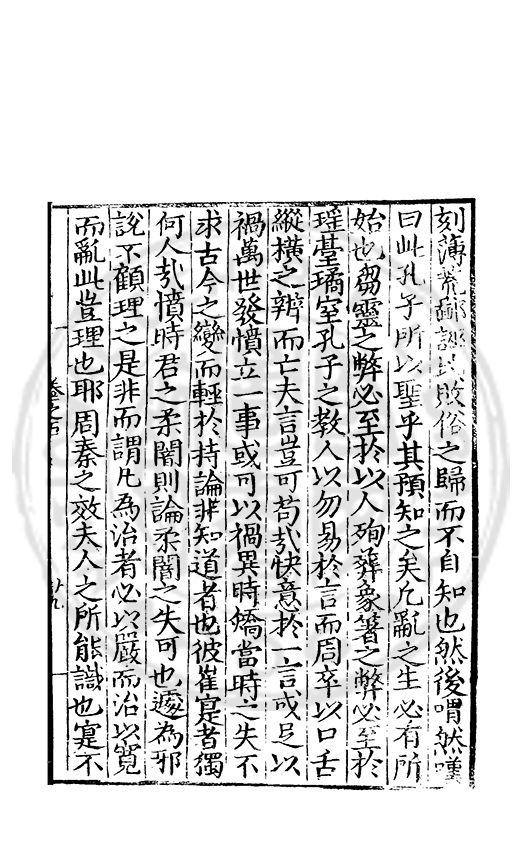 刻薄荒鄙誣民敗俗之歸而不自知也然後喟然嘆
曰此孔子所以聖乎其預知之矣凡亂之生必有所
始也芻靈之弊必至於以人殉葬象箸之弊必至於
瑶臺璚室孔子之教人以勿易於言而周卒以口舌
縱横之辨而亡夫言豈可苟哉快意於一言或足以
禍萬世發憤立一事或可以禍異時矯當時之失不
求古今之變而輕於持論非知道者也彼崔寔者獨
何人哉憤時君之柔闇則論柔闇之失可也遽為邪
說不顧理之是非而謂凡為治者必以嚴而治以寬
而亂此豈理也耶周秦之效夫人之所能識也寔不
卷之
廿九